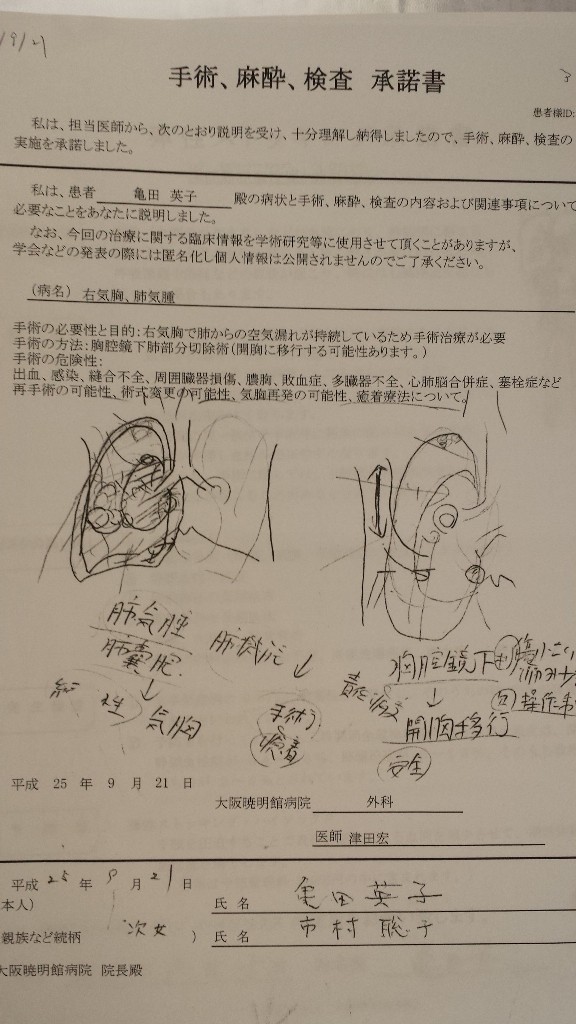 9/21
手術、麻酔、検査 承諾書
患者様ID:
私は、担当医師から、次のとおり説明を受け、十分理解し納得しましたので、手術、麻酔、検査の
実施を承諾しました。
私は、患者 亀田 英子 殿の病状と手術、麻酔、検査の内容および関連事項について
必要なことをあなたに説明しました。
なお、今回の治療に関する臨床情報を学術研究等に使用させて頂くことがありますが、
学会などの発表の際には匿名化し個人情報は公開されませんのでご了承ください。
(病名) 右気胸、肺気腫
手術の必要性と目的:右気胸で肺からの空気漏れが持続しているため手術治療が必要
手術の方法:胸腔鏡下肺部分切除術(開胸に移行する可能性あります。)
手術の危険性:
出血、感染、縫合不全、周囲臓器損傷、膿胸、敗血症、多臓器不全、心肺脳合併症、塞栓症など
再手術の可能性、術式変更の可能性、気胸再発の可能性、癒着療法について。
肺気腫
肺嚢胞
↓
気胸
性
↓
手術
癒着
胸腔鏡下
責任病変
↓
開胸移行
安全
操作
平成 25 年 9 月 21 日
大阪暁明館病院 外科
医師 津田宏
平成 25 年 9 月 21 日
本人) 氏 名 亀田英子
親族など続柄 次女 ) 氏 名 市村聡子
大阪暁明館病院 院長殿